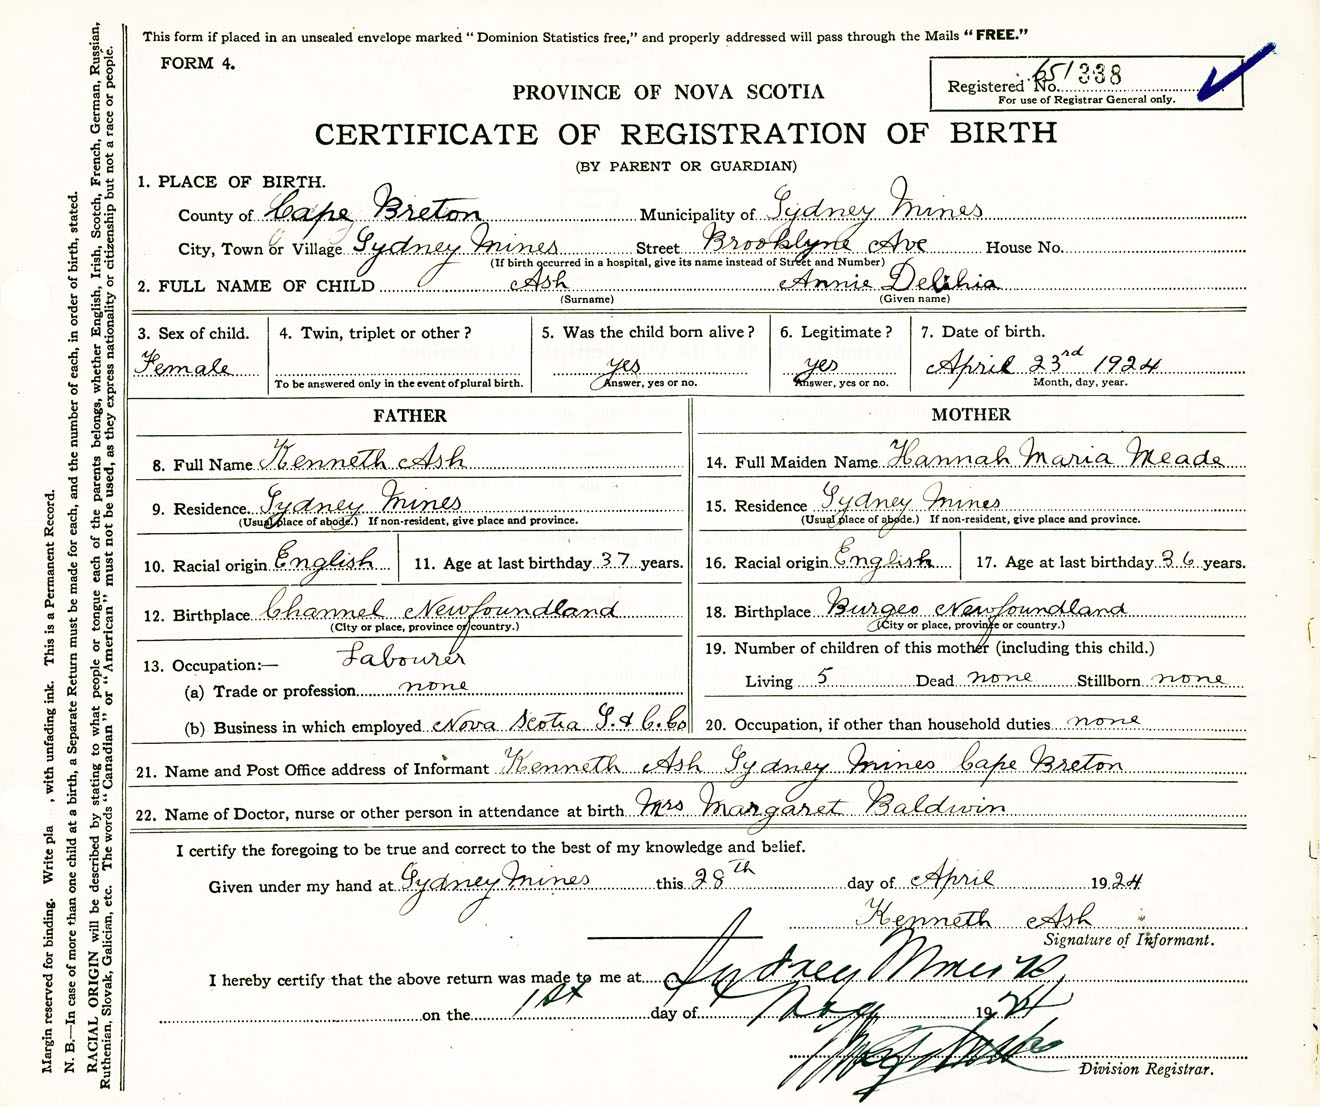 This form if placed in an unsealed envelope marked "Dominion Statistics free," and properly addressed will pass through the Mails "FREE."
FORM 4.
Registered No. 651338
For use of Registrar General only.
PROVINCE OF NOVA SCOTIA
CERTIFICATE OF REGISTRATION OF BIRTH
(BY PARENT OR GUARDIAN)
1. PLACE OF BIRTH.
County of Cape Breton Municipality of Sydney Mines
City, Town or Village Sydney Mines Street Brooklyne Ave House No.
(If birth occurred in a hospital, give its name instead of Street and Number)
2. FULL NAME OF CHILD Ash Annie Delihia
(Surname) (Given name)
3. Sex of child. 4. Twin, triplet or other? 5. Was the child born alive? 6. Legitimate? 7. Date of birth.
Female yes yes April 23rd 1924
To be answered only in the event of plural birth. Answer, yes or no. Answer, yes or no. Month, day, year.
FATHER
8. Full Name Kenneth Ash
9. Residence. Sydney Mines
(Usual place of abode.) If non-resident, give place and province.
10. Racial origin English 11. Age at last birthday 37 years.
12. Birthplace Channel Newfoundland
(City or place, province or country.)
13. Occupation:— Labourer
(a) Trade or profession none
(b) Business in which employed Nova Scotia S. & C. Co
MOTHER
14. Full Maiden Name Hannah Maria Meade
15. Residence Sydney Mines
(Usual place of abode.) If non-resident, give place and province.
16. Racial origin English 17. Age at last birthday 36 years.
18. Birthplace Burgeo Newfoundland
(City or place, province or country.)
19. Number of children of this mother (including this child.)
Living 5 Dead none Stillborn none
20. Occupation, if other than household duties none
21. Name and Post Office address of Informant Kenneth Ash Sydney Mines Cape Breton
22. Name of Doctor, nurse or other person in attendance at birth Mrs Margaret Baldwin
I certify the foregoing to be true and correct to the best of my knowledge and belief.
Given under my hand at Sydney Mines this 28th day of April 1924
Kenneth Ash
Signature of Informant.
I hereby certify that the above return was made to me at Sydney Mines
on the 1st day of May 1924
Division Registrar.
Margin reserved for binding. Write pla , with unfading ink. This is a Permanent Record.
N. B.—In case of more than one child at a birth, a Separate Return must be made for each, and the number of each, in order of birth, stated.
RACIAL ORIGIN will be described by stating to what people or tongue each of the parents belongs, whether English, Irish, Scotch, French, German, Russian,
Ruthenian, Slovak, Galician, etc. The words "Canadian" or "American" must not be used, as they express nationality or citizenship but not a race or people.